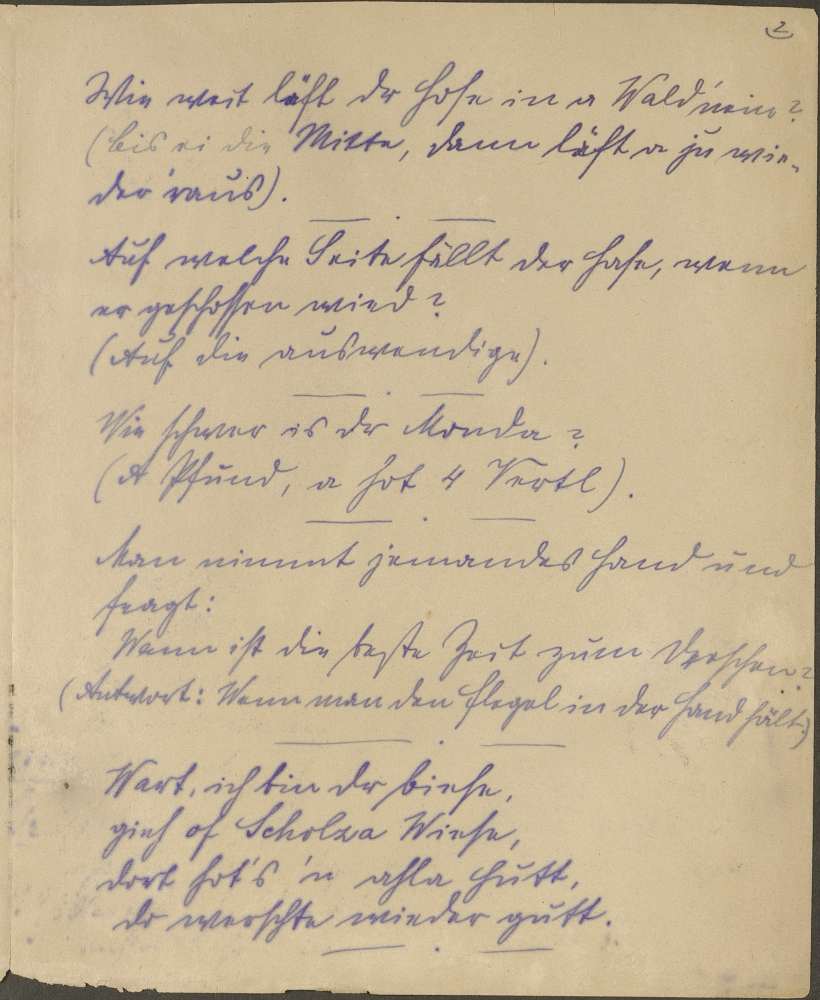 2
Wie weit läft dr Hose in a Wald 'nein?
(bis ei die Mitte, dann läft a ju wie-
der 'raus).
Auf welche Seite fällt der Hase, wenn
er geschossen wird?
(Auf die auswendige).
Wie schwer is dr Monda?
(A Pfund, a hot 4 Vertl).
Man nimmt jemandes Hand und
fragt:
Wann ist die beste Zeit zum Dreschen?
(Antwort: Wenn man den Flegel in der Hand hält)
Wart, ich bin dr biese,
gieh of Scholza Wiese,
dort hot's 'n ahla Hutt,
do werschte wieder gutt.